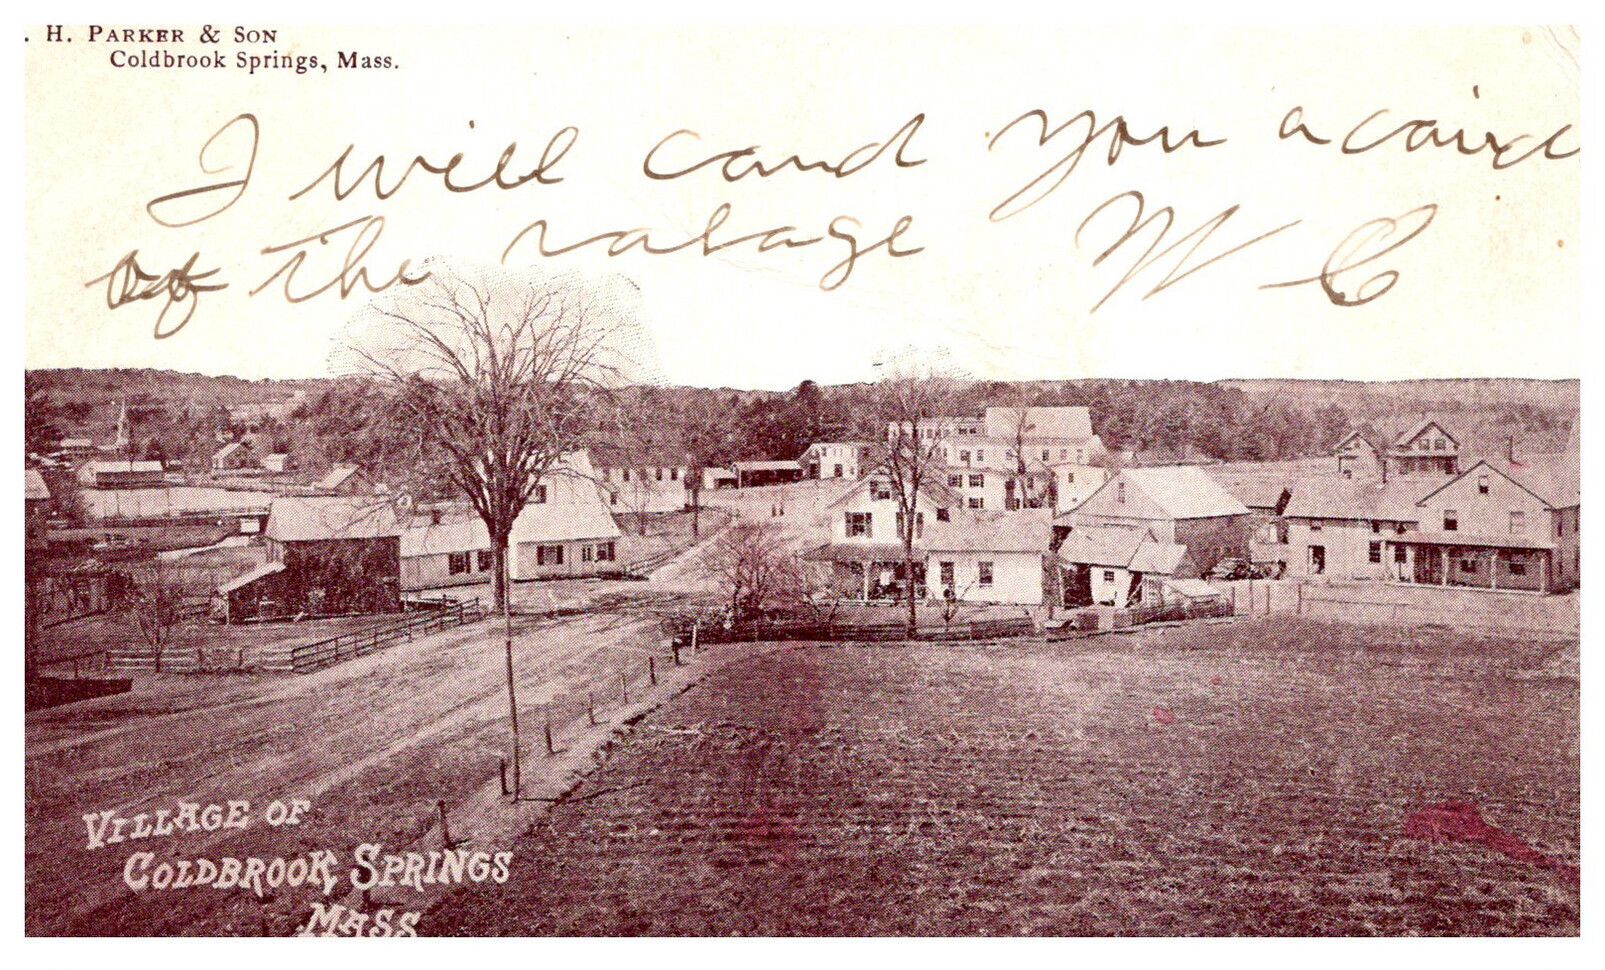 . H. PARKER & SON
Coldbrook Springs, Mass.
I will cand you a caird
of the valage W C
VILLAGE OF
COLDBROOK SPRINGS
MASS